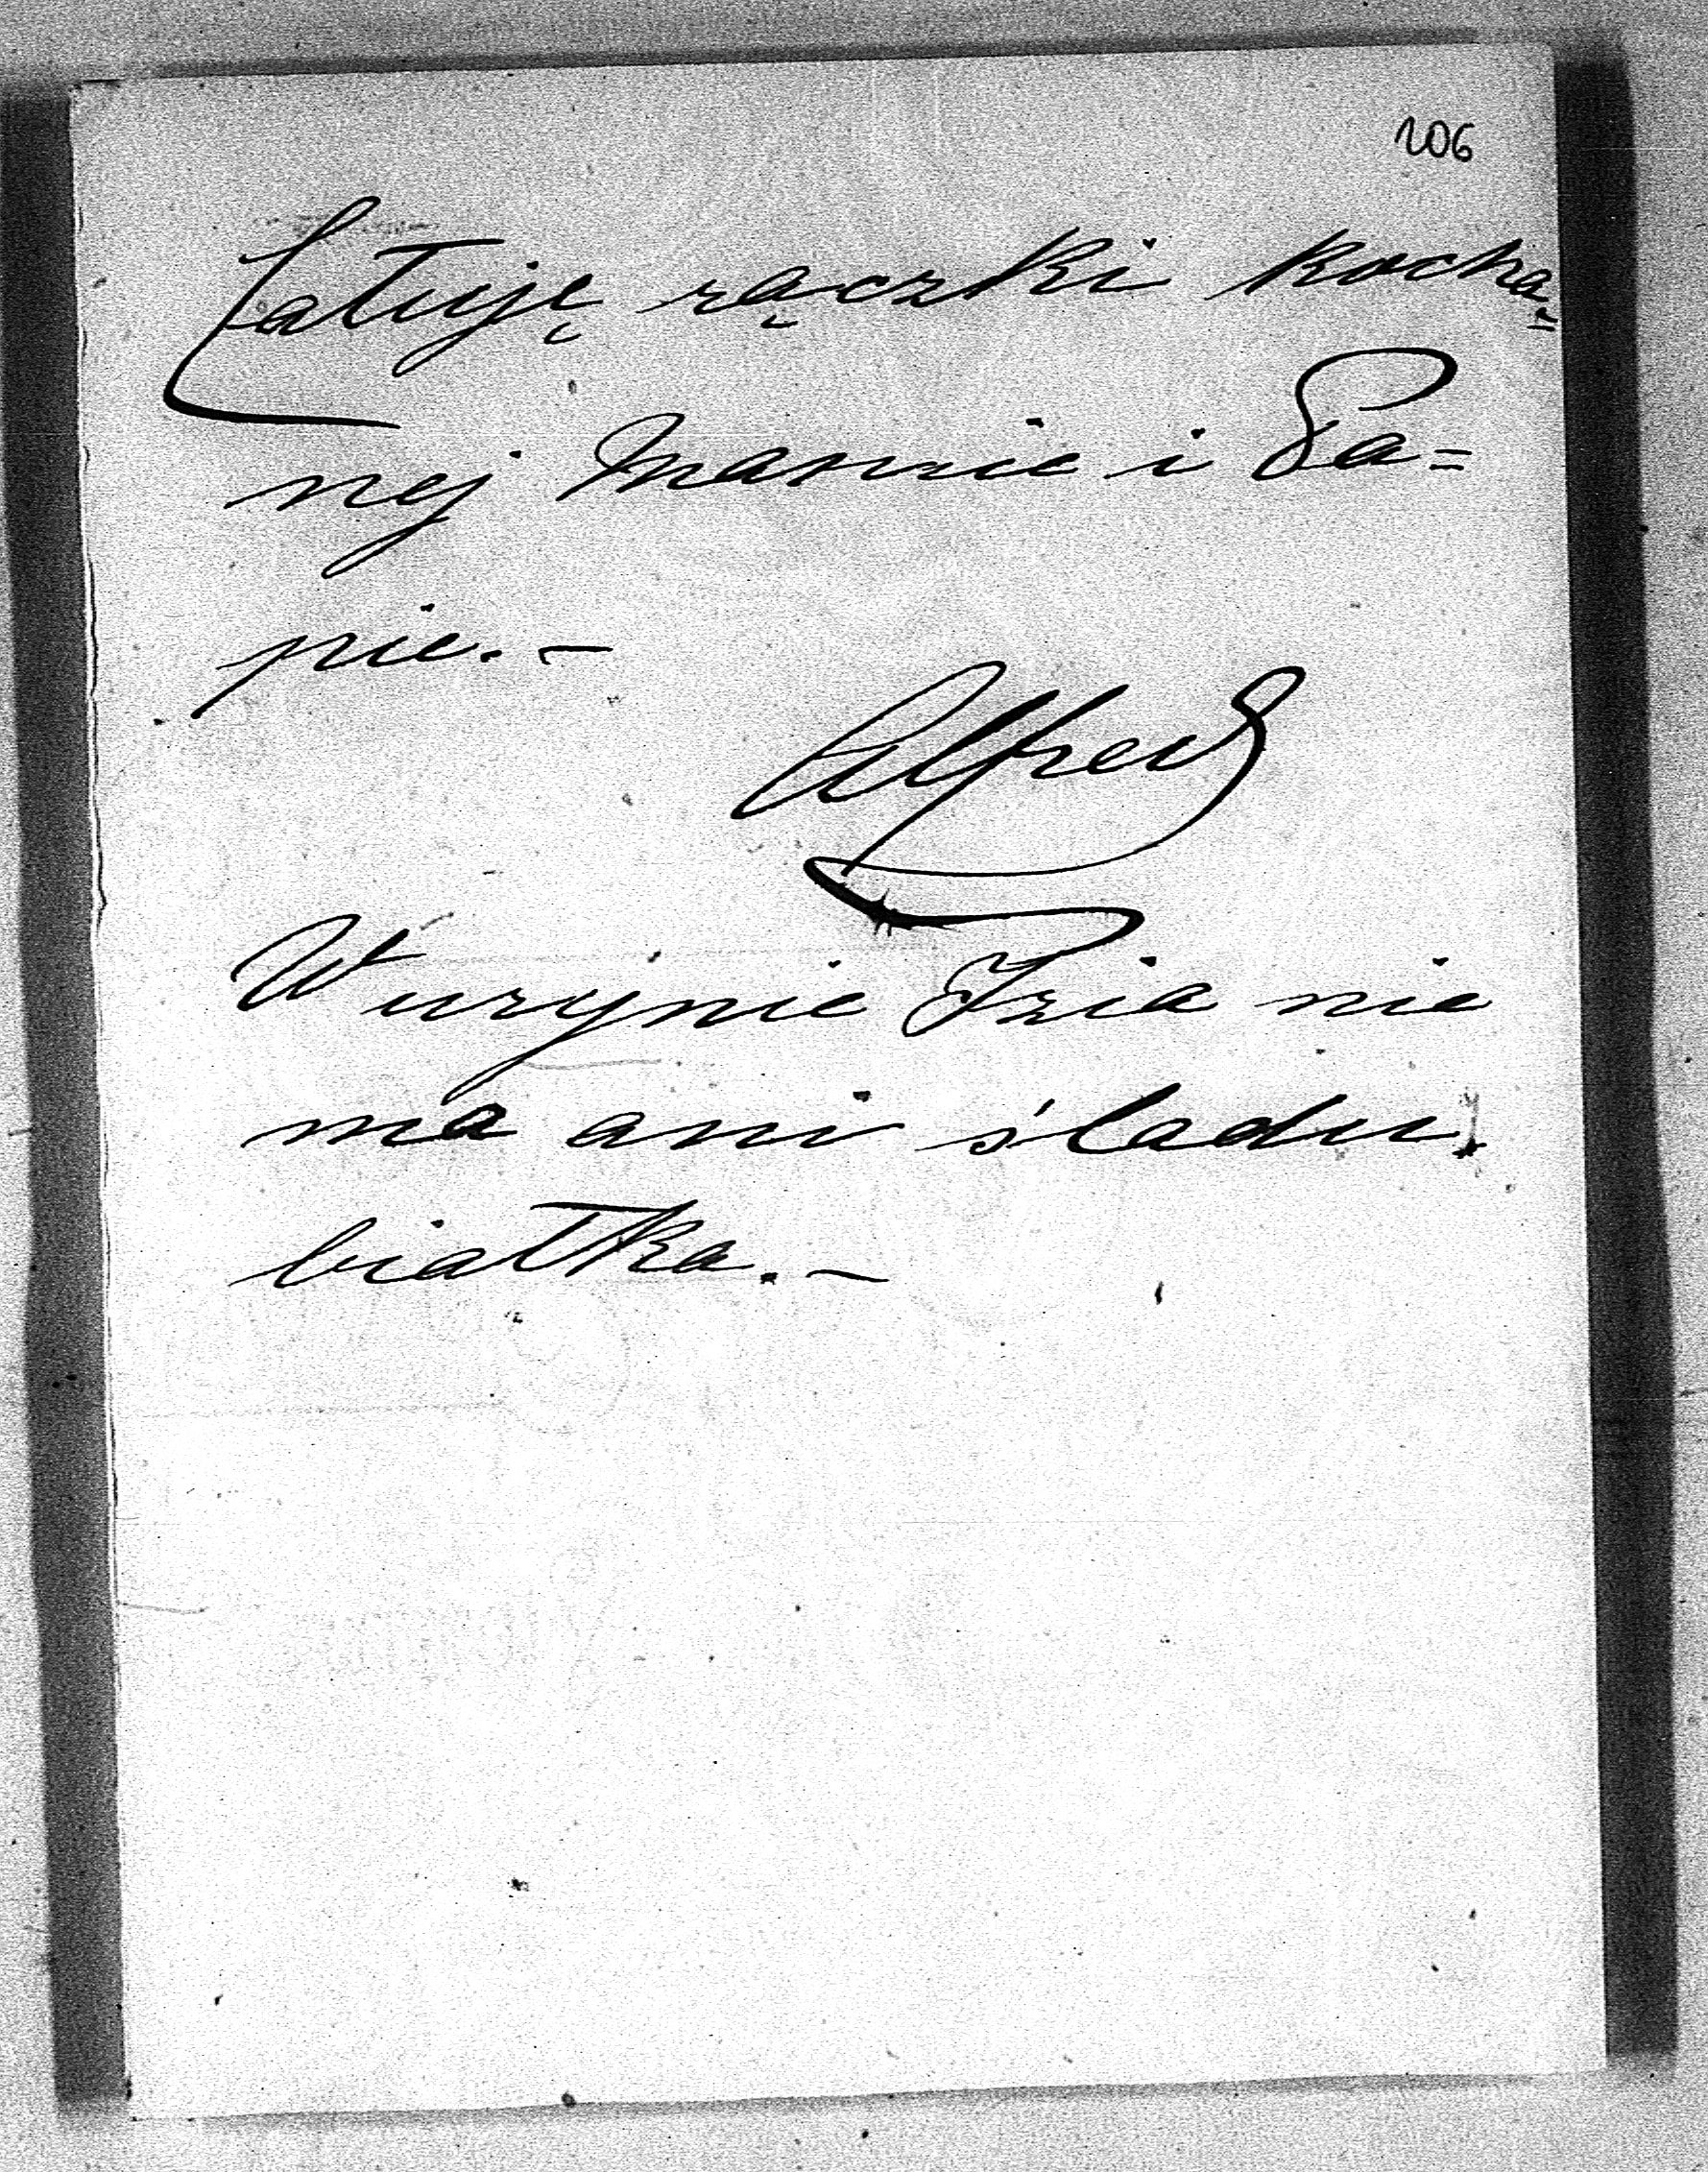 106
Całuję rączki kocha=
nej Mamie i Pa=
pie. —
Alfred
W urynie Izia nie
ma ani śladu
białka. —